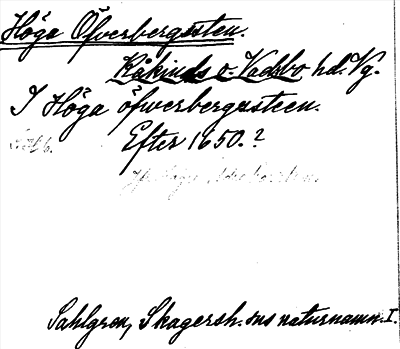 Höga Öfverbergusten.
Kåkinds o. Vadsbo hd. Vg.
I Höga öfwerbergusteen.
Efter 1650.?
Sahlgren, Skagersh. sns naturnamn. I.